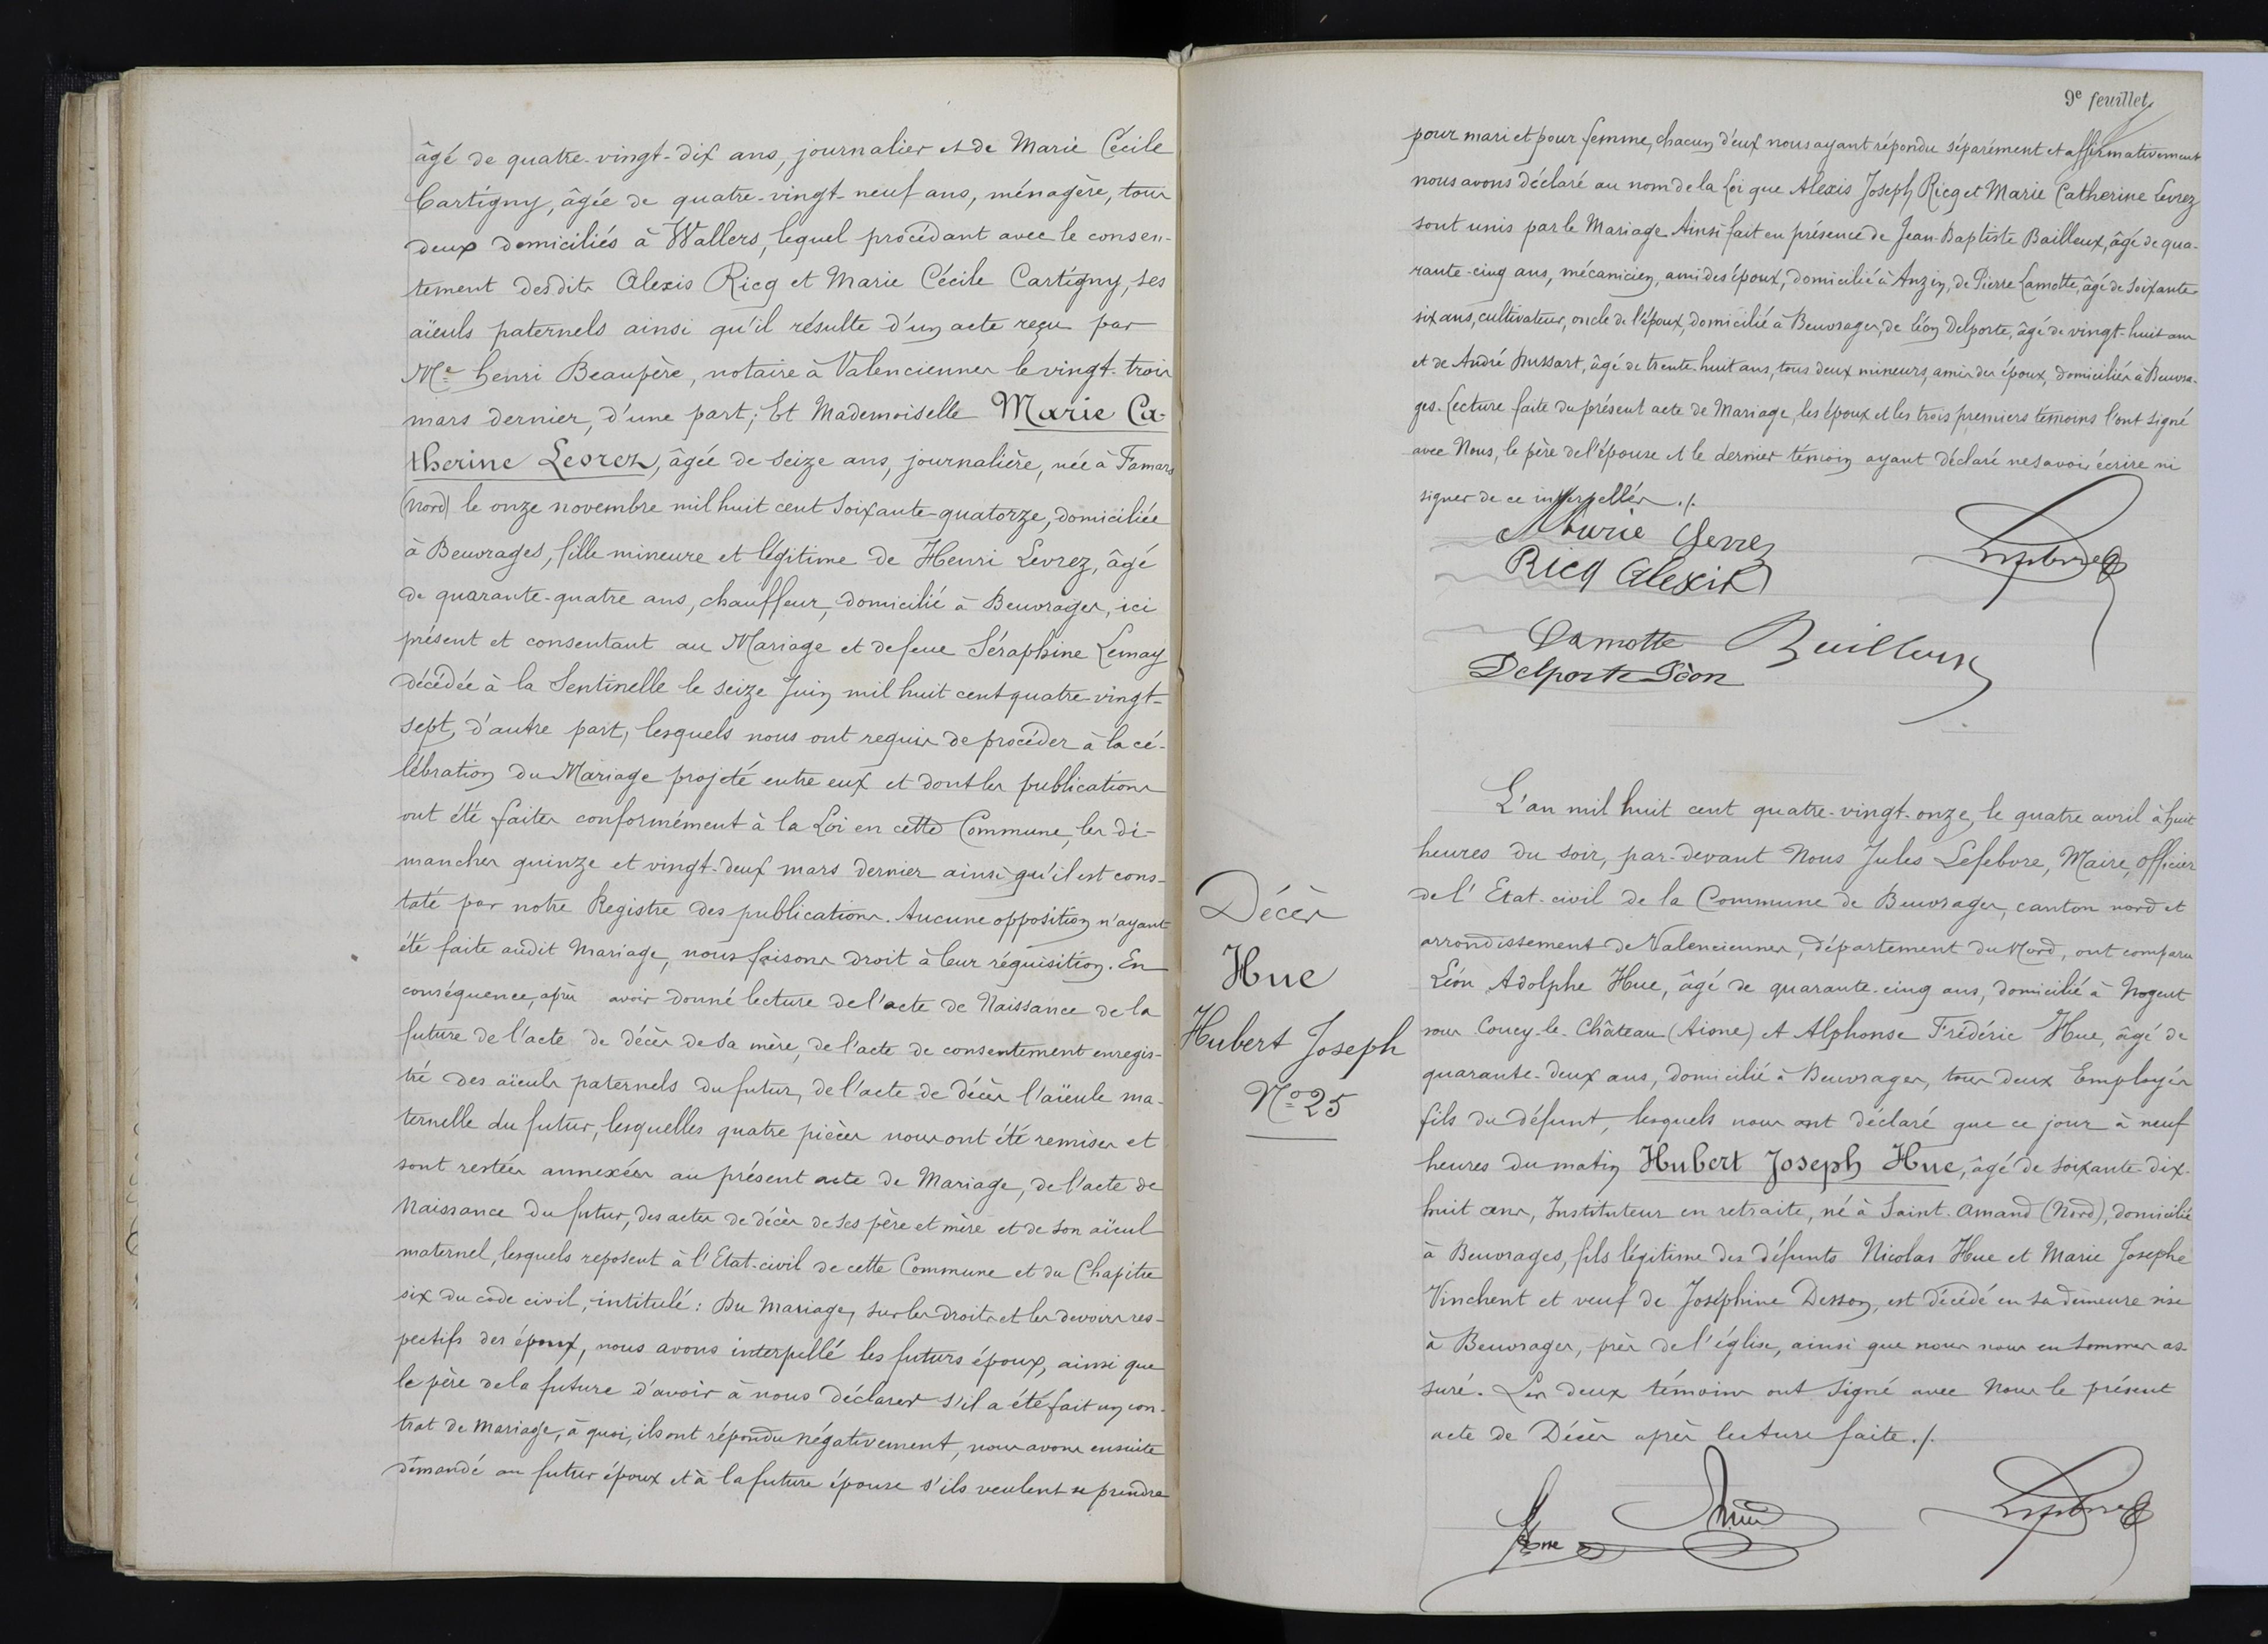 âgé de quatre-vingt-dix ans, journalier et de Marie Cécile
Cartigny, âgée de quatre-vingt-neuf ans, ménagère, tous
deux domiciliés à Wallers, lequel procédant avec le consen-
tement desdits Alexis Ricq et Marie Cécile Cartigny, ses
aïeuls paternels ainsi qu'il résulte d'un acte reçu par
Me henri Beaupère, notaire à Valenciennes le vingt-trois
mars dernier, d'une part; Et Mademoiselle Marie Ca-
therine Levrez, âgée de seize ans, journalière, née à Famars
(Nord) le onze novembre mil huit cent soixante-quatorze, domiciliée
à Beuvrages, fille mineure et légitime de Henri Levrez, âgé
de quarante-quatre ans, chauffeur, domicilié à Beuvrages, ici
présent et consentant au Mariage et de feue Séraphine Lemay
décédée à la Sentinelle le seize Juin mil huit cent quatre-vingt-
sept, d'autre part, lesquels nous ont requis de procéder à la cé-
lébration du Mariage projeté entre eux et dont les publications
ont été faites conformément à la Loi en cette Commune, les di-
manches quinze et vingt-deux mars dernier ainsi qu'il est cons-
taté par notre Registre des publications. Aucune opposition n'ayant
été faite audit Mariage, nous faisons droit à leur réquisition. En
conséquence, après avoir donné lecture de l'acte de Naissance de la
future de l'acte de décès de sa mère, de l'acte de consentement enregis-
tré des aïeuls paternels du futur, de l'acte de décès l'aïeule ma-
ternelle du futur, lesquelles quatre pièces nous ont été remises et
sont restées annexées au présent acte de Mariage, de l'acte de
Naissance du futur, des actes de décès de ses père et mère et de son aïeul
maternel, lesquels reposent à l'Etat-civil de cette Commune et du Chapitre
six du code civil, intitulé: Du Mariage, sur les droits et les devoirs res-
pectifs des époux, nous avons interpellé les futurs époux, ainsi que
le père de la future d'avoir à nous déclarer s'il a été fait un con-
trat de Mariage, à quoi, ils ont répondu négativement, nous avons ensuite
demandé au futur époux et à la future épouse s'ils veulent se prendre
9e feuillet
pour mari et pour femme, chacun d'eux nous ayant répondu séparément et affirmativement
nous avons déclaré au nom de la Loi que Alexis Joseph Ricq et Marie Catherine Levrez
sont unis par le Mariage. Ainsi fait en présence de Jean-Baptiste Bailleux, âgé de qua-
rante-cinq ans, mécanicien, ami des époux, domicilié à Anzin, de Pierre Lamotte, âgé de soixante-
six ans, cultivateur, oncle de l'époux, domicilié à Beuvrages, de Léon Delporte, âgé de vingt-huit ans
et de André Dussart, âgé de trente-huit ans, tous deux mineurs, amis des époux, domiciliés à Beuvra-
ges. Lecture faite du présent acte de Mariage, les époux et les trois premiers témoins l'ont signé
avec Nous, le père de l'épouse et le dernier témoin ayant déclaré ne savoir écrire ni
signer de ce interpellés ./.
Marie Levrez
Ricq Alexis
Lefebvre
Lamotte Bailleux
Delporte Léon
Décès
Hue
Hubert Joseph
No 25
L'an mil huit cent quatre-vingt-onze, le quatre avril à huit
heures du soir, par-devant Nous Jules Lefebvre, Maire, officier
de l'Etat-civil de la Commune de Beuvrages, canton nord et
arrondissement de Valenciennes, département du Nord, ont comparu
Léon Adolphe Hue, âgé de quarante-cinq ans, domicilié à Nogent
sous Coucy-le-Château (Aisne) et Alphonse Frédéric Hue, âgé de
quarante-deux ans, domicilié à Beuvrages, tous deux Employés
fils du défunt, lesquels nous ont déclaré que ce jour à neuf
heures du matin Hubert Joseph Hue, âgé de soixante-dix-
huit ans, Instituteur en retraite, né à Saint-Amand (Nord), domicilié
à Beuvrages, fils légitime des défunts Nicolas Hue et Marie Josephe
Vinchent et veuf de Joséphine Desson, est décédé en sa demeure sise
à Beuvrages, près de l'église, ainsi que nous nous en sommes as-
suré. Les deux témoins ont signé avec Nous le présent
acte de Décès après lecture faite ./.
Hue Hue Lefebvre